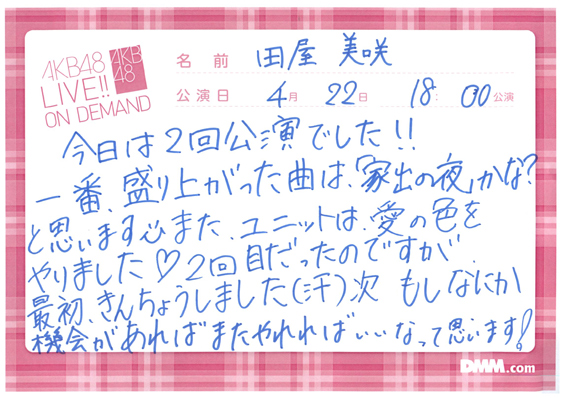 AKB48
LIVE!!
ON DEMAND
AKB
48
名前 田屋 美咲
公演日 4月 22日 18:00公演
今日は2回公演でした!!
一番、盛り上がった曲は、「家出の夜」かな?
と思います。また、ユニットは、愛の色を
やりました♡2回目だったのですが、
最初、きんちょうしました(汗)次 もしなにか
機会があればまたやれればいいなって思います!
DMM.com